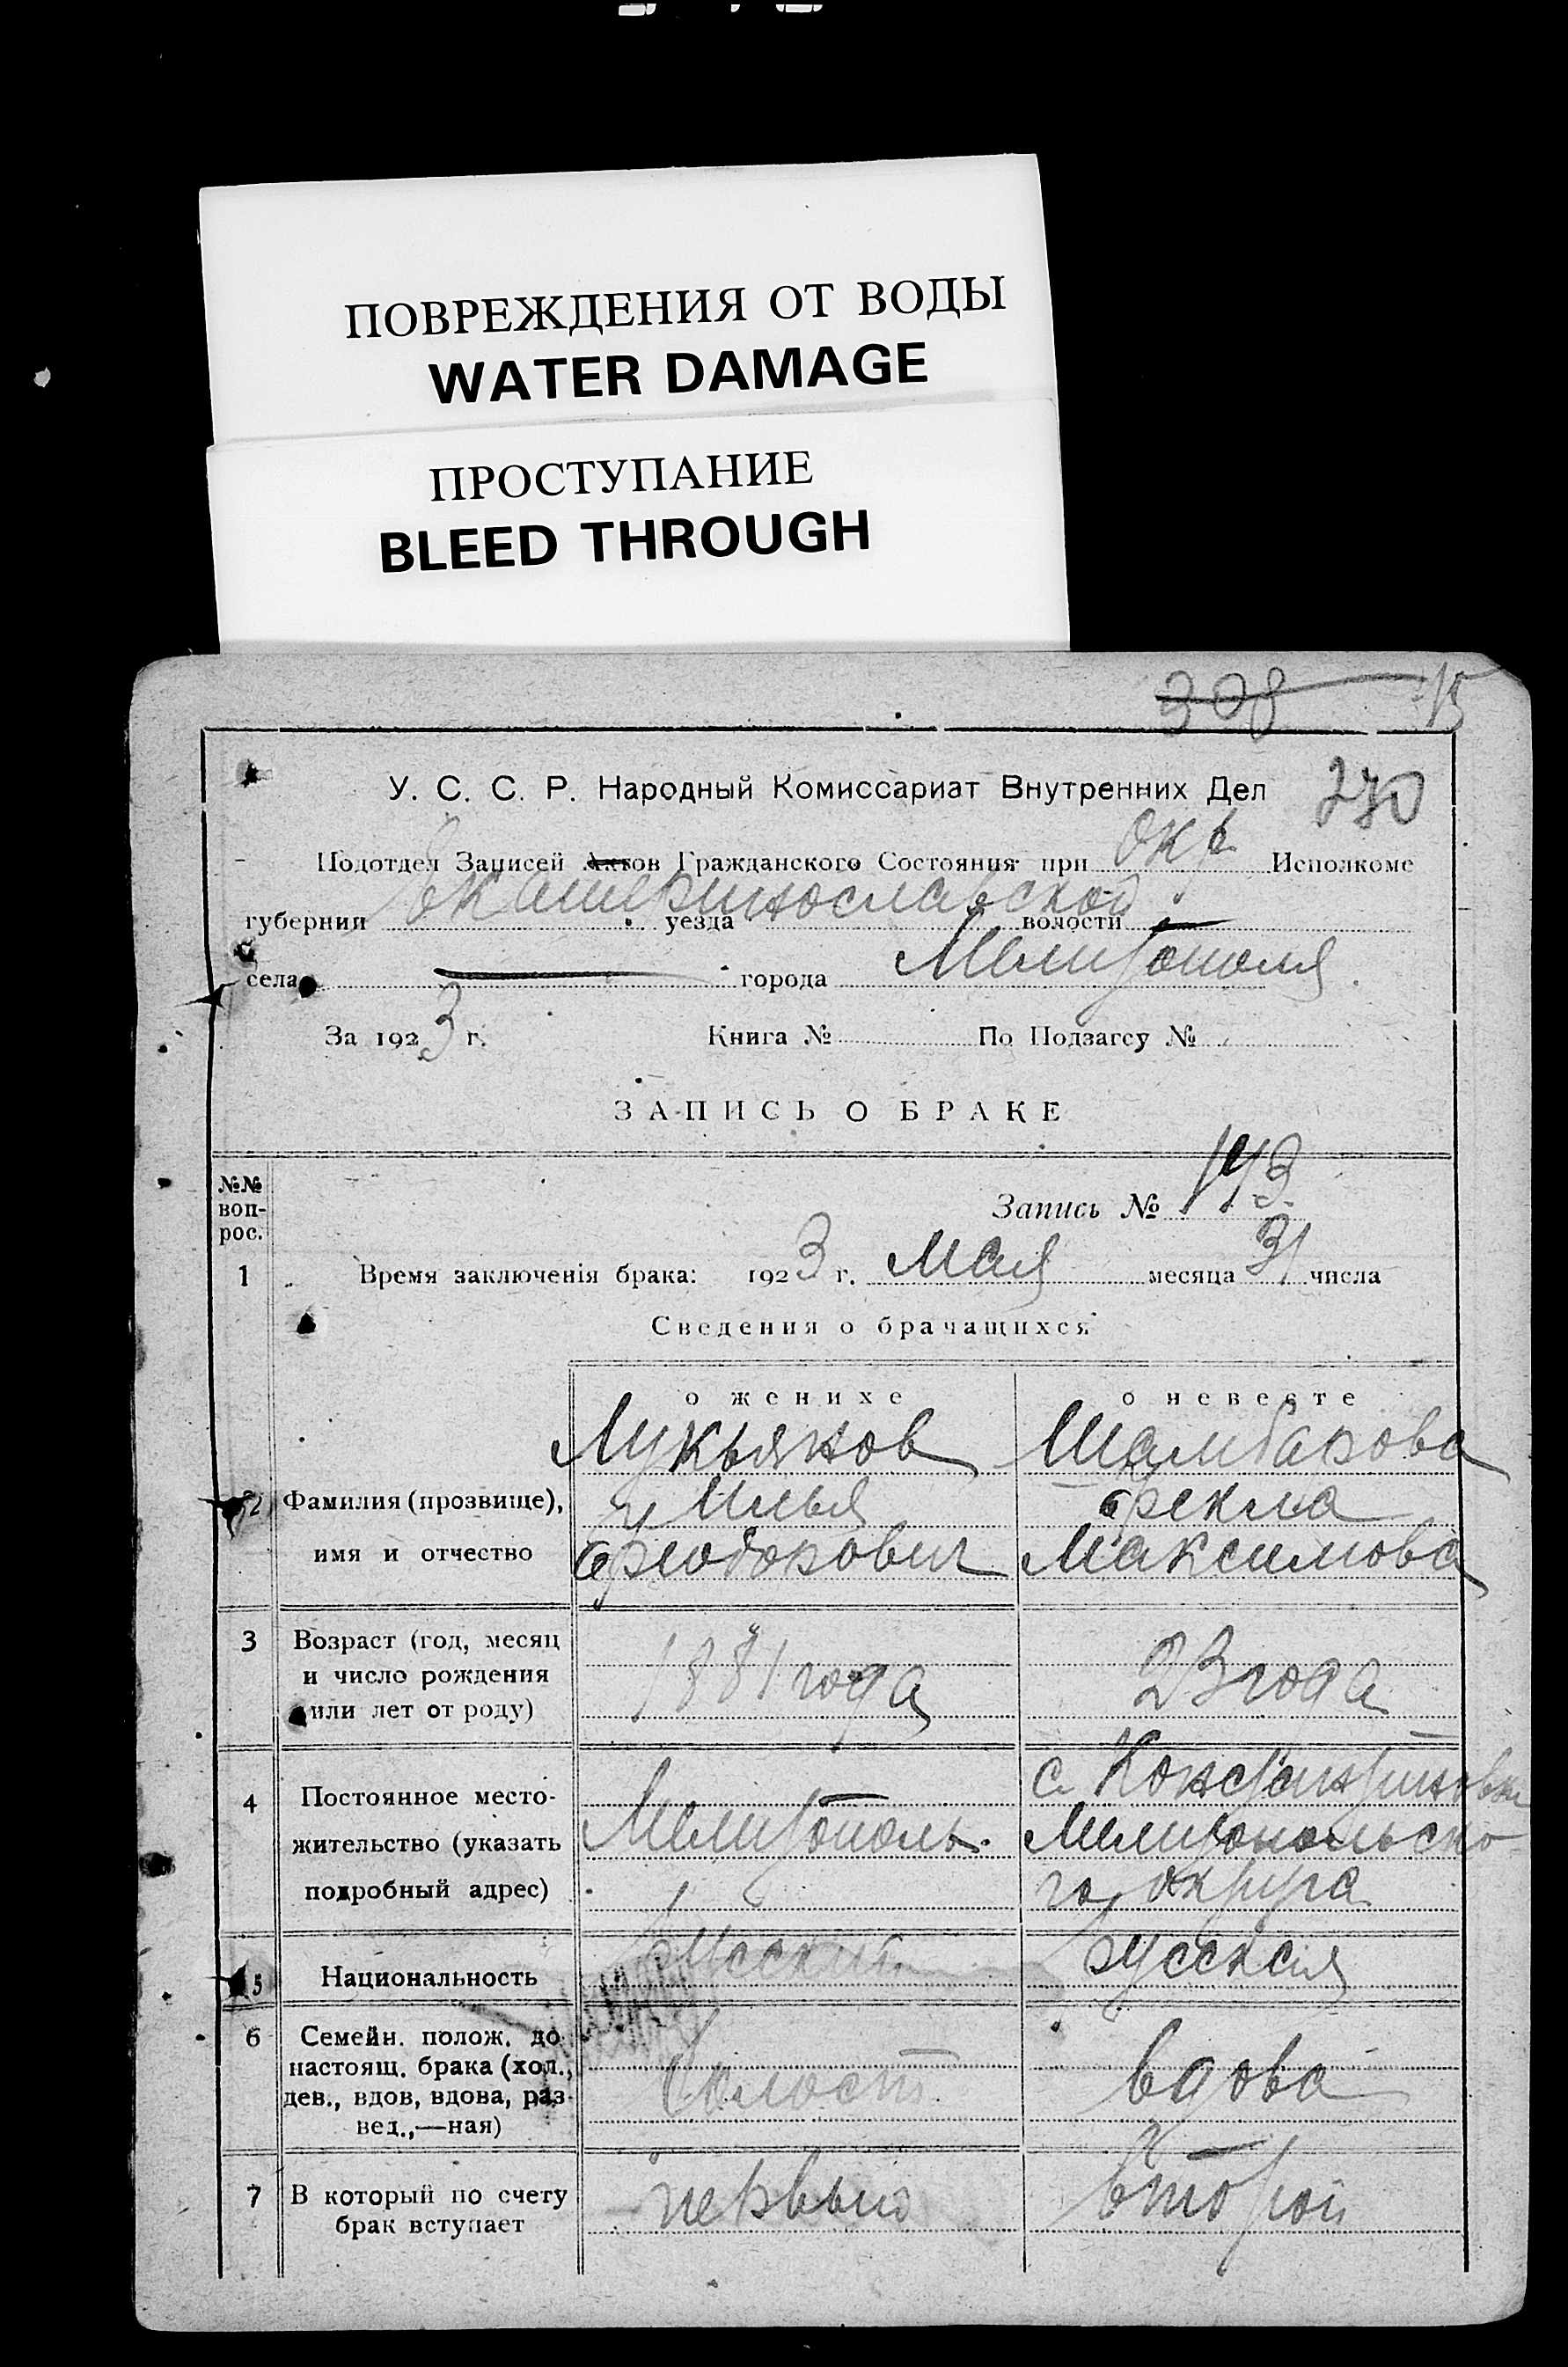 ПОВРЕЖДЕНИЯ ОТ ВОДЫ
WATER DAMAGE
ПРОСТУПАНИЕ
BLEED THROUGH
308 15
У. С. С. Р. Народный Комиссариат Внутренних Дел 270
Подотдел Записей Актов Гражданского Состояния при Окр Исполкоме
губернии Екатеринославской уезда волости
села — города Мелитополя
За 1923 г. Книга № По Подзагсу №
ЗАПИСЬ О БРАКЕ
№№ вопрос.
Запись № 143
1 Время заключенія брака: 1923 г. мая месяца 31 числа
Сведения о брачащихся
о женихе о невесте
Лукьянов Шамбарова
2 Фамилия (прозвище), Илья Фекла
имя и отчество Феодорович Максимова
3 Возраст (год, месяц
и число рождения 1881 года 23 года
или лет от роду)
с. Константиновки
4 Постоянное место-
жительство (указать Мелитополь. Мелитопольско-
подробный адрес) го округа
5 Национальность русский русская
6 Семейн. полож. до
настоящ. брака (хол., холост вдова
дев., вдов, вдова, раз-
вед.,—ная)
7 В который по счету первый второй
брак вступает